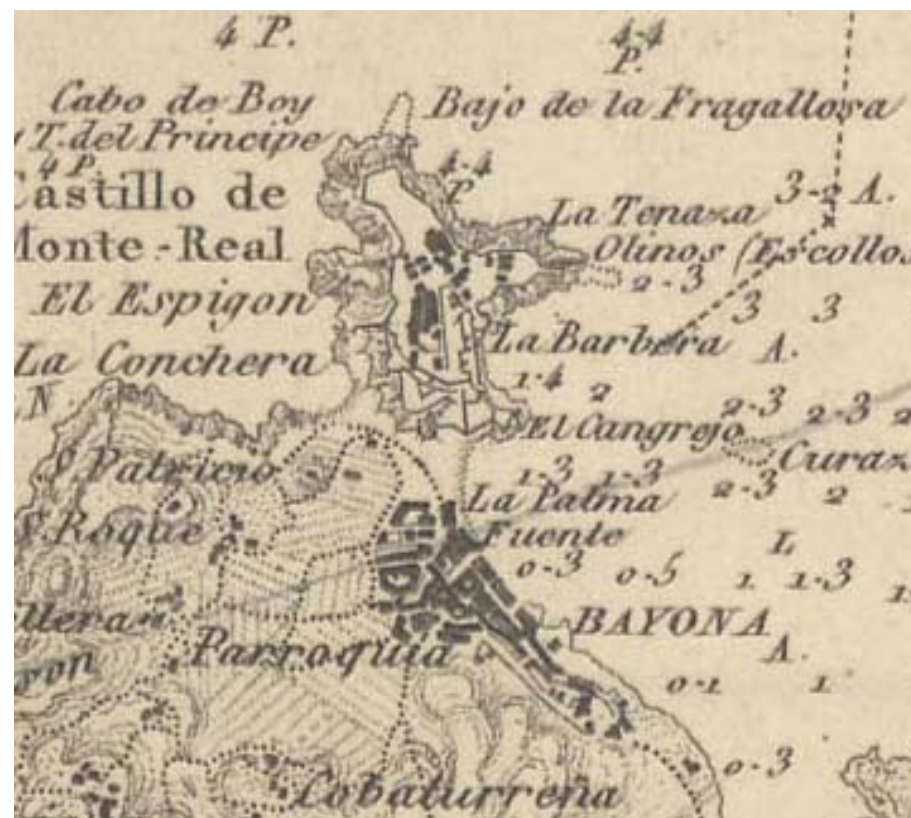 4 P.
4-4
P.
Cabo de Boy
Bajo de la Fragallosa
y T. del Principe
4 P.
4-4
P
3-2 A.
Castillo de
La Tenaza
Monte-Real
Olinos (Escollos
2-3
El Espigon
3
3
La Barbera
A.
La Conchera
1-4
2
N.
2-3
2-3
2
El Cangrejo
Curaz
S. Patricio
1-3
1-3
2-3
2
La Palma
S. Roque
Fuente
L
0-3
0-5
1
1-3
1
lleran
BAYONA
Parroquia
A.
ron
0-1
1
0-3
Cobaturreña